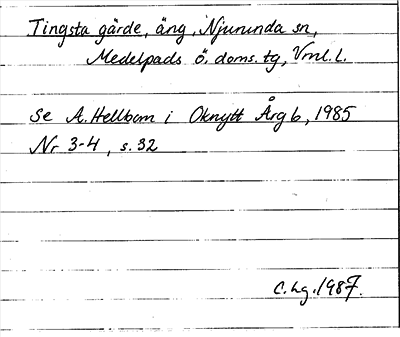 Tingsta gärde, äng, Njurunda sn,
Medelpads ö. doms. tg, Vrnl. l.
Se A. Hellbom i Oknytt Årg 6, 1985
Nr 3-4, s. 32
C. Lg. 1987.